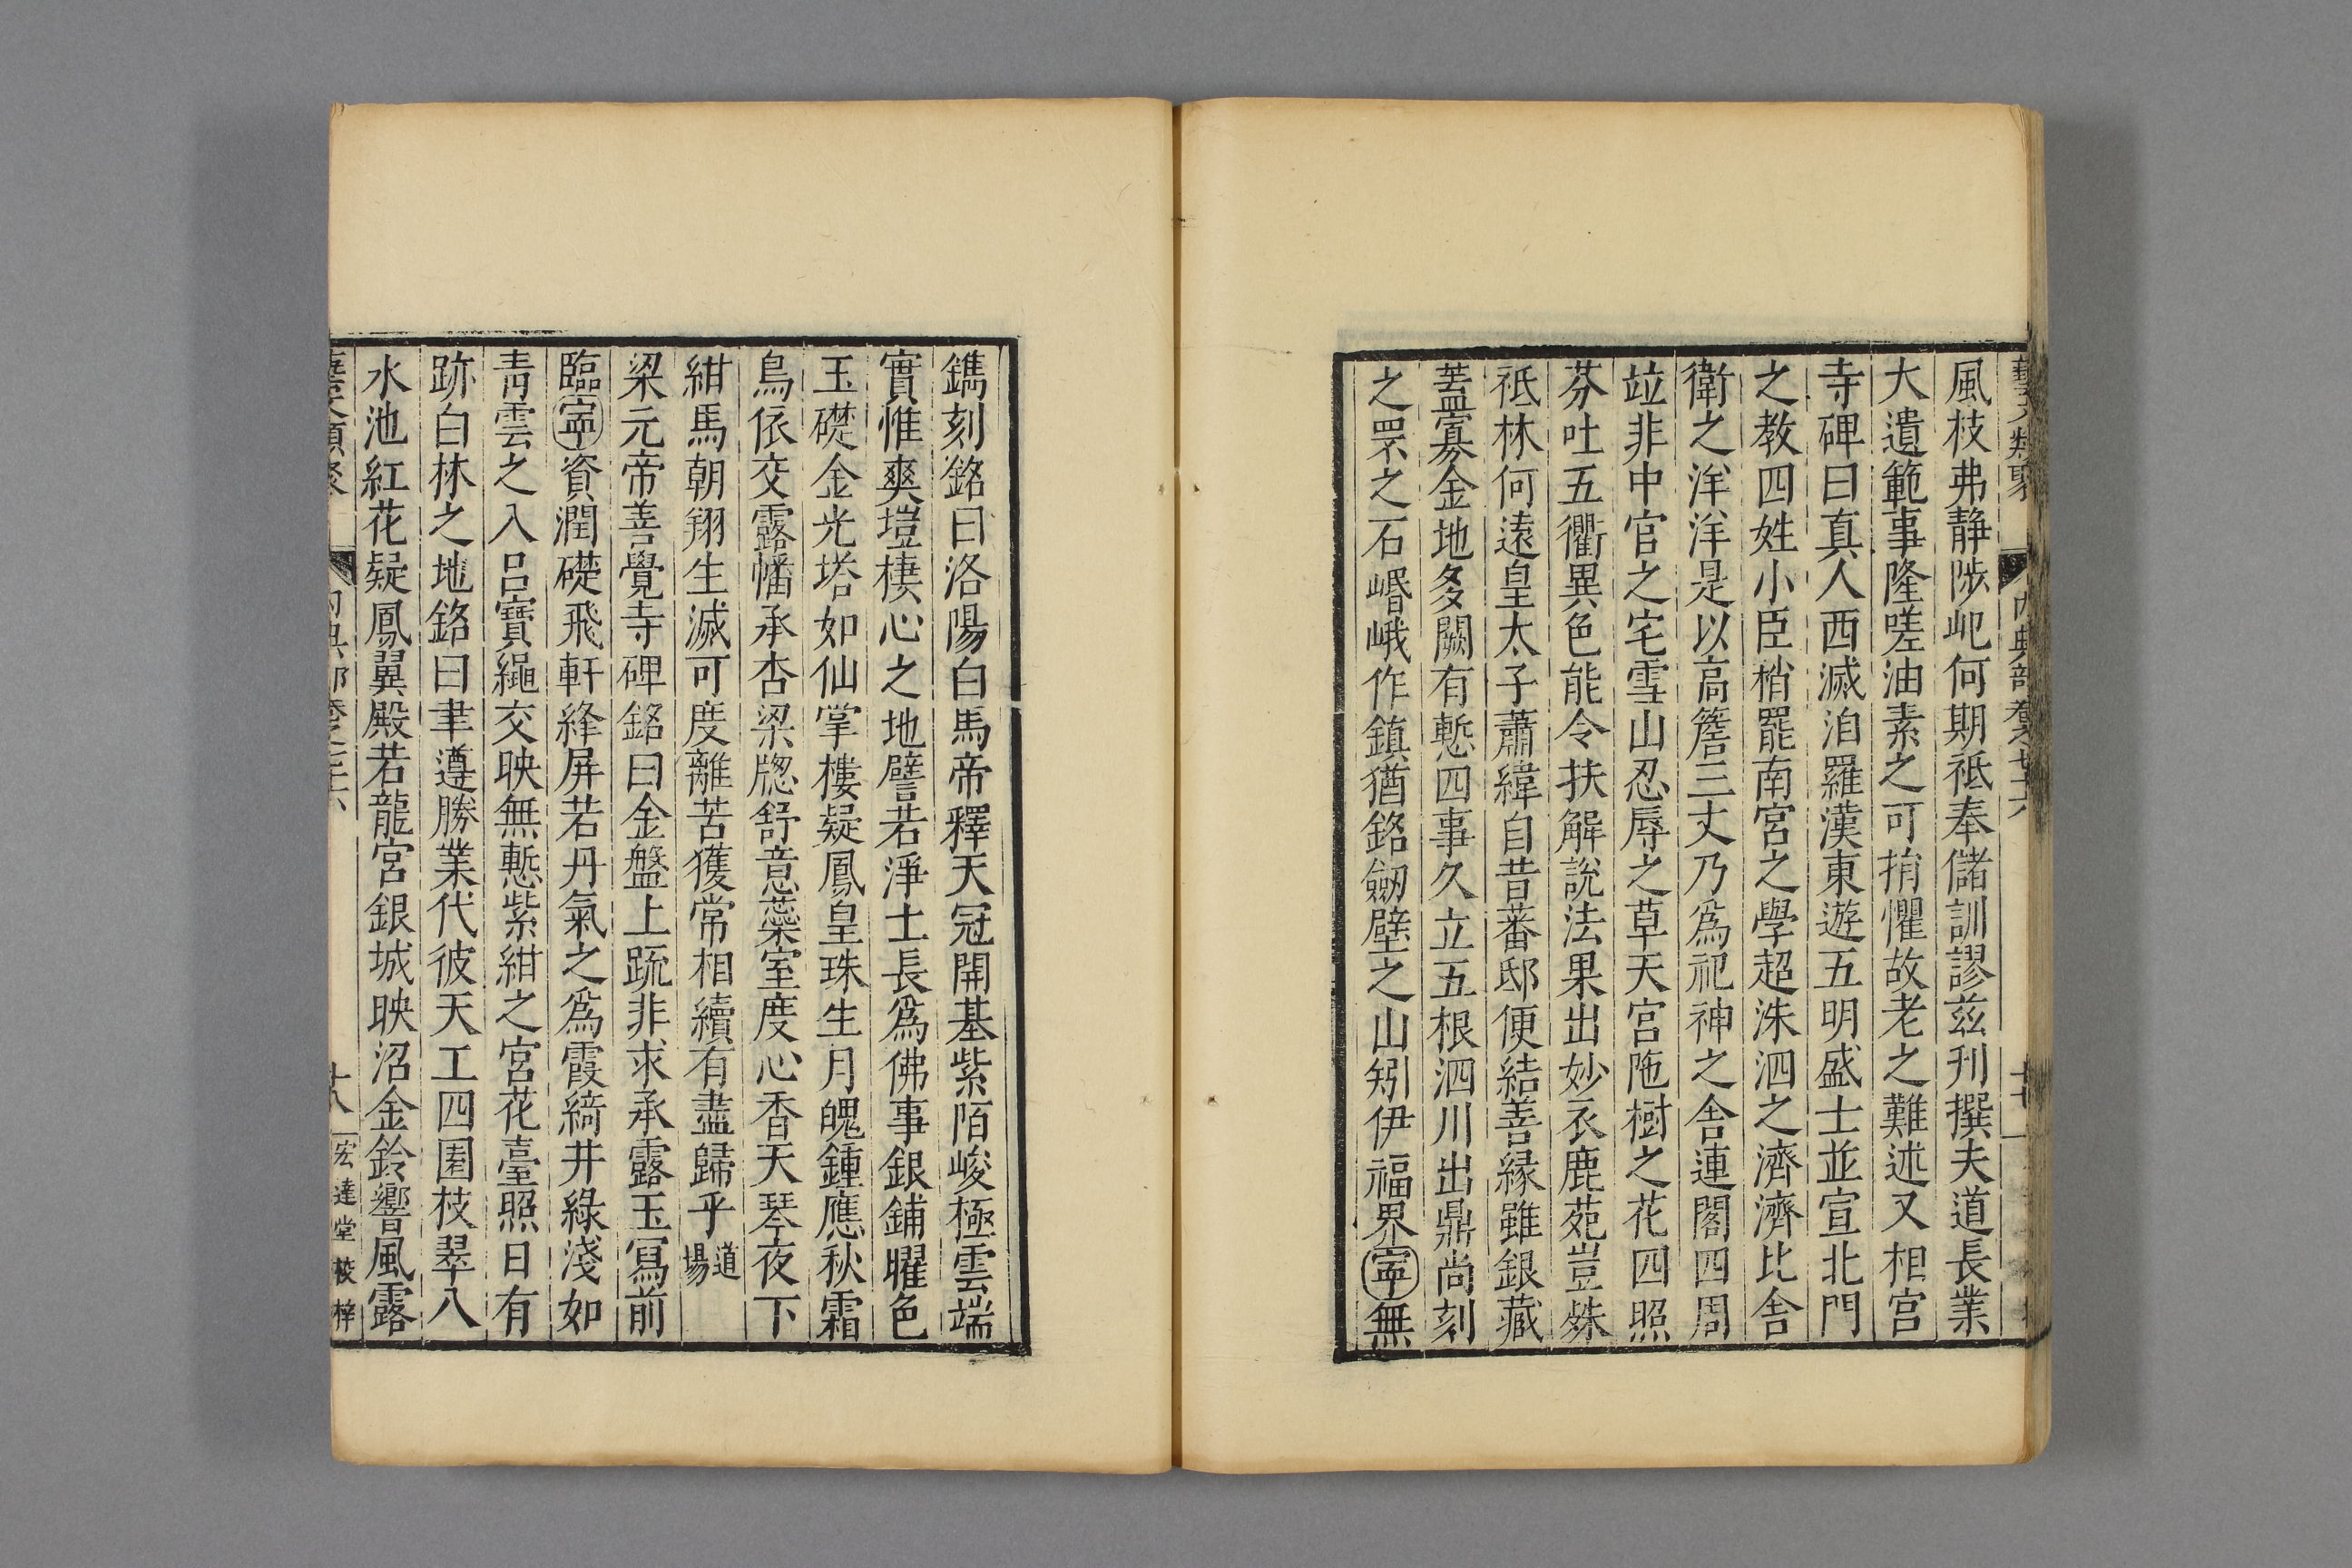 藝文類聚 內典部卷之七十六 十七
風枝弗靜陟屺何期祗奉儲訓謬茲刊撰夫道長業
大遺範事隆嗟油素之可捐懼故老之難述又相宮
寺碑曰真人西滅洎羅漢東遊五明盛士並宣北門
之教四姓小臣梢罷南宮之學超洙泗之濟濟比舍
衛之洋洋是以高簷三丈乃爲祀神之舍連閣四周
竝非中官之宅雪山忍辱之草天宮陁樹之花四照
芬吐五衢異色能令扶解說法果出妙衣鹿苑豈殊
祗林何遠皇太子蕭緯自昔蕃邸便結善緣雖銀藏
蓋寡金地多闕有慙四事久立五根泗川出鼎尚刻
之罘之石㟭峨作鎮猶銘劒壁之山矧伊福界寧無
鐫刻銘曰洛陽白馬帝釋天冠開基紫陌峻極雲端
實惟爽塏棲心之地譬若淨土長爲佛事銀鋪曜色
玉礎金光塔如仙掌樓疑鳳皇珠生月魄鍾應秋霜
鳥依交露幡承杏梁牕舒意蘂室度心香天琴夜下
紺馬朝翔生滅可度離苦獲常相續有盡歸乎道場
梁元帝善覺寺碑銘曰金盤上疏非求承露玉舄前
臨寧資潤礎飛軒絳屏若丹氣之爲霞綺井綠淺如
青雲之入呂寶繩交映無慙紫紺之宮花臺照日有
跡白林之地銘曰聿遵勝業代彼天工四園枝翠八
水池紅花疑鳳翼殿若龍宮銀城映沼金鈴響風露
藝文類聚 內典部卷之七十六 十八 宏達堂棱梓